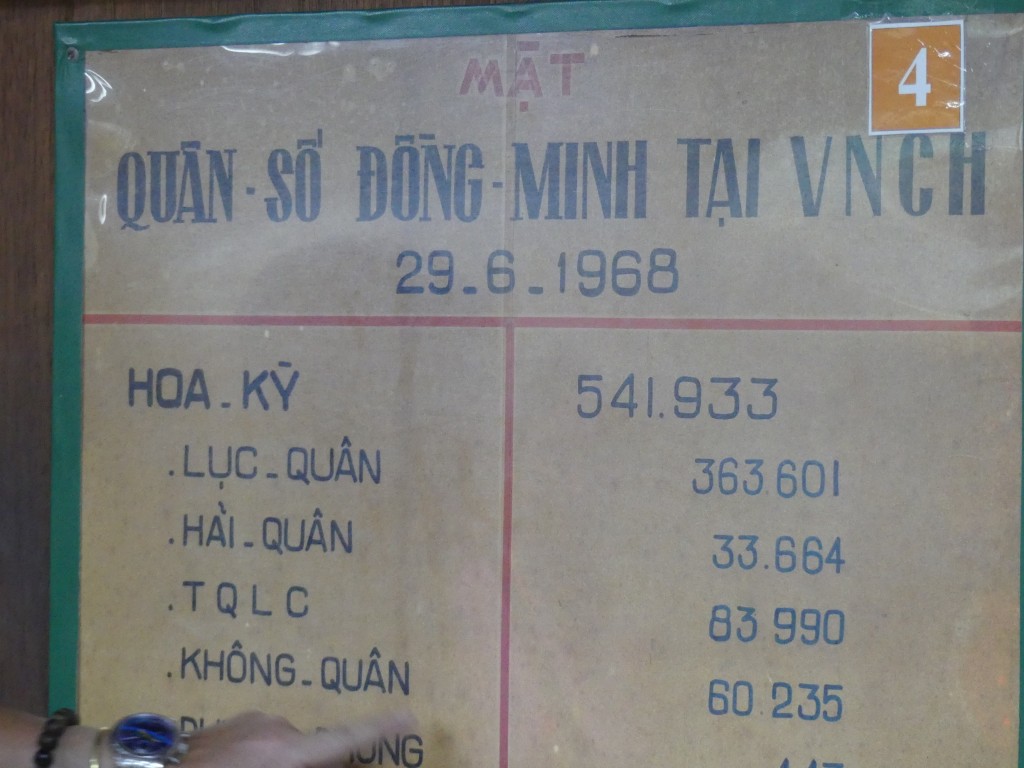 4
MẬT
QUÂN-SỐ ĐỒNG-MINH TẠI VNCH
29_6_1968
HOA_KỲ 541.933
.LỤC_QUÂN 363.601
.HẢI_QUÂN 33.664
.TQLC 83.990
.KHÔNG_QUÂN 60.235